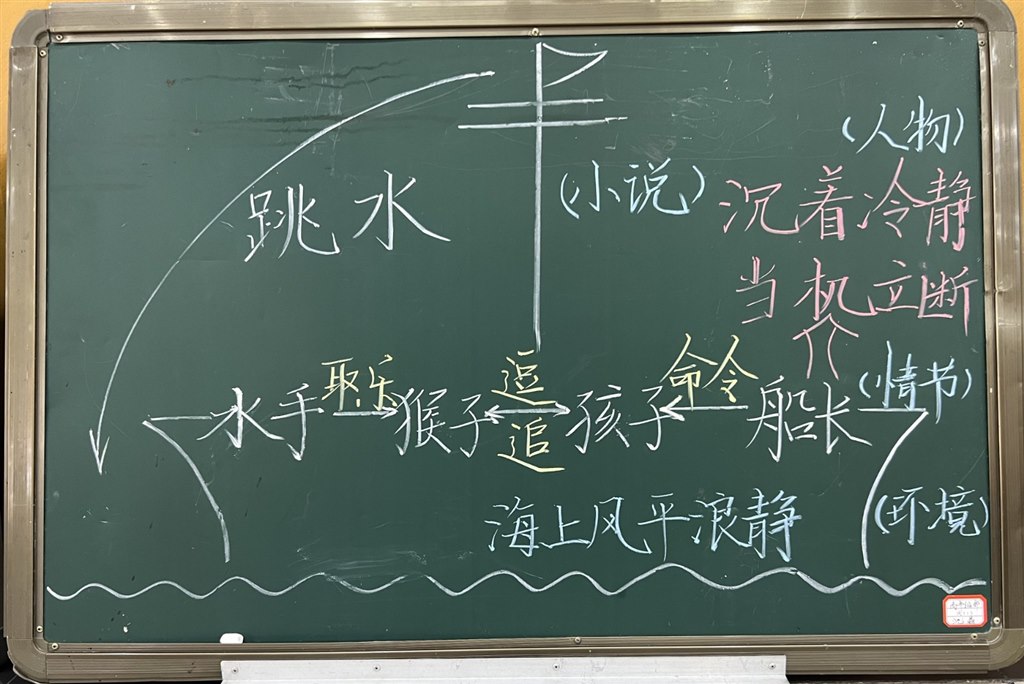 (人物)
跳水
(小说)
沉着冷静
当机立断
取乐
逗
命令
水手 猴子 孩子 船长
(情节)
追
海上风平浪静
(环境)